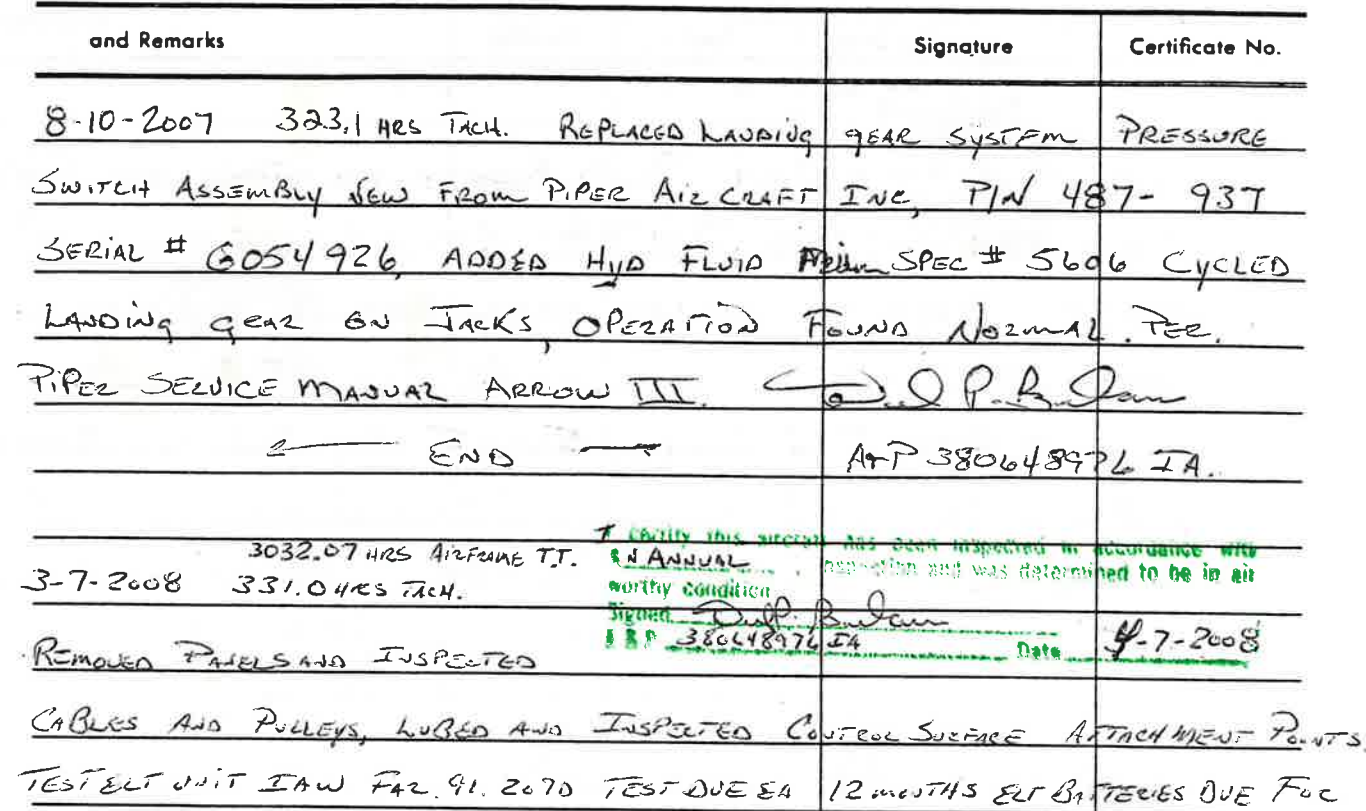 and Remarks Signature Certificate No.
8-10-2007 323.1 HRS TACH. REPLACED LANDING GEAR SYSTEM PRESSURE
SWITCH ASSEMBLY NEW FROM PIPER AIRCRAFT INC, P/N 487-937
SERIAL # G054926, ADDED HYD FLUID SPEC # 5606 CYCLED
LANDING GEAR ON JACKS, OPERATION FOUND NORMAL. PER.
PIPER SERVICE MANUAL ARROW III.
END A&P 380648976 IA.
3032.07 HRS AIRFRAME T.T.
3-7-2008 331.0 HRS TACH.
I certify this aircraft has been inspected in accordance with
AN ANNUAL inspection and was determined to be in air
worthy condition
Signed
A & P 380648976 IA Date 4-7-2008
REMOVED PANELS AND INSPECTED
CABLES AND PULLEYS, LUBED AND INSPECTED CONTROL SURFACE ATTACHMENT POINTS.
TEST ELT UNIT IAW FAR. 91. 207D TEST DUE EA 12 MONTHS ELT BATTERIES DUE FOR